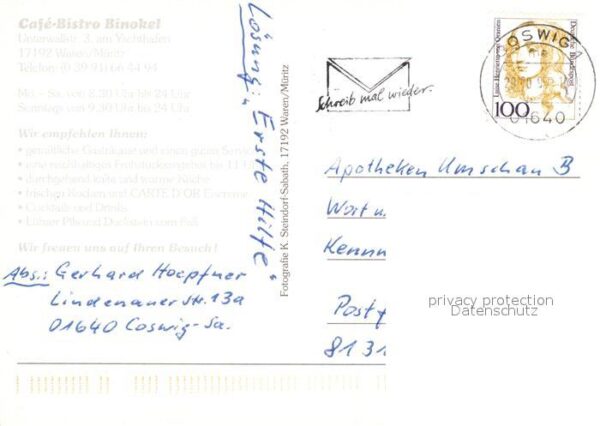 Café-Bistro Binokel
Unterwallstr. 3, am Yachthafen
17192 Waren/Müritz
Telefon: (0 39 91) 66 44 94
Mo. - Sa. von 8.30 Uhr bis 24 Uhr
Sonntags von 9.30 Uhr bis 24 Uhr
Wir empfehlen Ihnen:
• gemütliche Gasträume und einen guten Service
• eine reichhaltiges Frühstücksangebot bis 11
• durchgehend kalte und warme Küche
• frischen Kuchen und CARTE D'OR Eiscreme
• Cocktails und Drinks
• Lübzer Pils und Duckstein vom Faß
Wir freuen uns auf Ihren Besuch!
Abs.: Gerhard Hoepfner
Lindenauer Str. 13a
01640 Coswig-Sa.
Lösung: „Erste Hilfe"
Fotografie K. Steindorf-Sabath, 17192 Waren/Müritz
Schreib mal wieder.
COSWIG
01640
100
Deutsche Bundespost
Luise Henriette von Oranien
Apotheken Umschau B
Wort u.
Kennn
Post
8131
privacy protection
Datenschutz